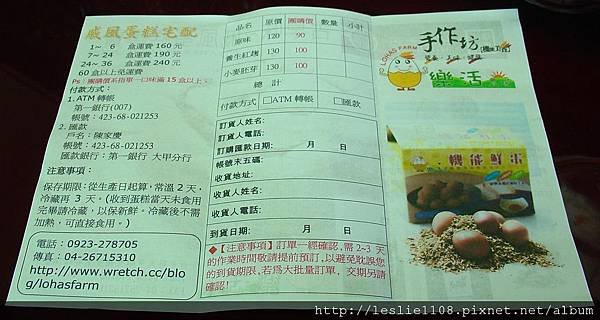 戚風蛋糕宅配
1~ 6 盒運費 160 元
7~ 24 盒運費 190 元
24~ 36 盒運費 240 元
60 盒以上免運費
Ps：團購價系指單一口味滿 15 盒以上
付款方式：
1. ATM 轉帳
第一銀行(007)
帳號：423-68-021253
2. 匯款
戶名：陳家慶
帳號：423-68-021253
匯款銀行：第一銀行 大甲分行
注意事項：
保存期限：從生產日起算，常溫 2 天，
冷藏再 3 天。(收到蛋糕當天未食用
完畢請冷藏，以保新鮮。冷藏後不需
加熱，可直接食用。)
電話：0923-278705
傳真：04-26715310
http://www.wretch.cc/blo
g/lohasfarm
品名 原價 團購價 數量 小計
原味 120 90
養生紅麴 130 100
小麥胚芽 130 100
總計
付款方式 □ATM 轉帳 □匯款
訂貨人姓名：
訂貨人電話：
訂購匯款日期： 月 日
帳號末五碼：
收貨地址：
收貨人姓名：
收貨人電話：
到貨日期： 月 日
◆【注意事項】訂單一經確認，需 2~3 天
的作業時間敬請提前預訂，以避免耽誤您
的到貨期限，若為大批量訂單，交期另請
確認！
LOHAS FARM
手作坊
樂活
機能鮮蛋
http://leslie1108.pixnet.net/album